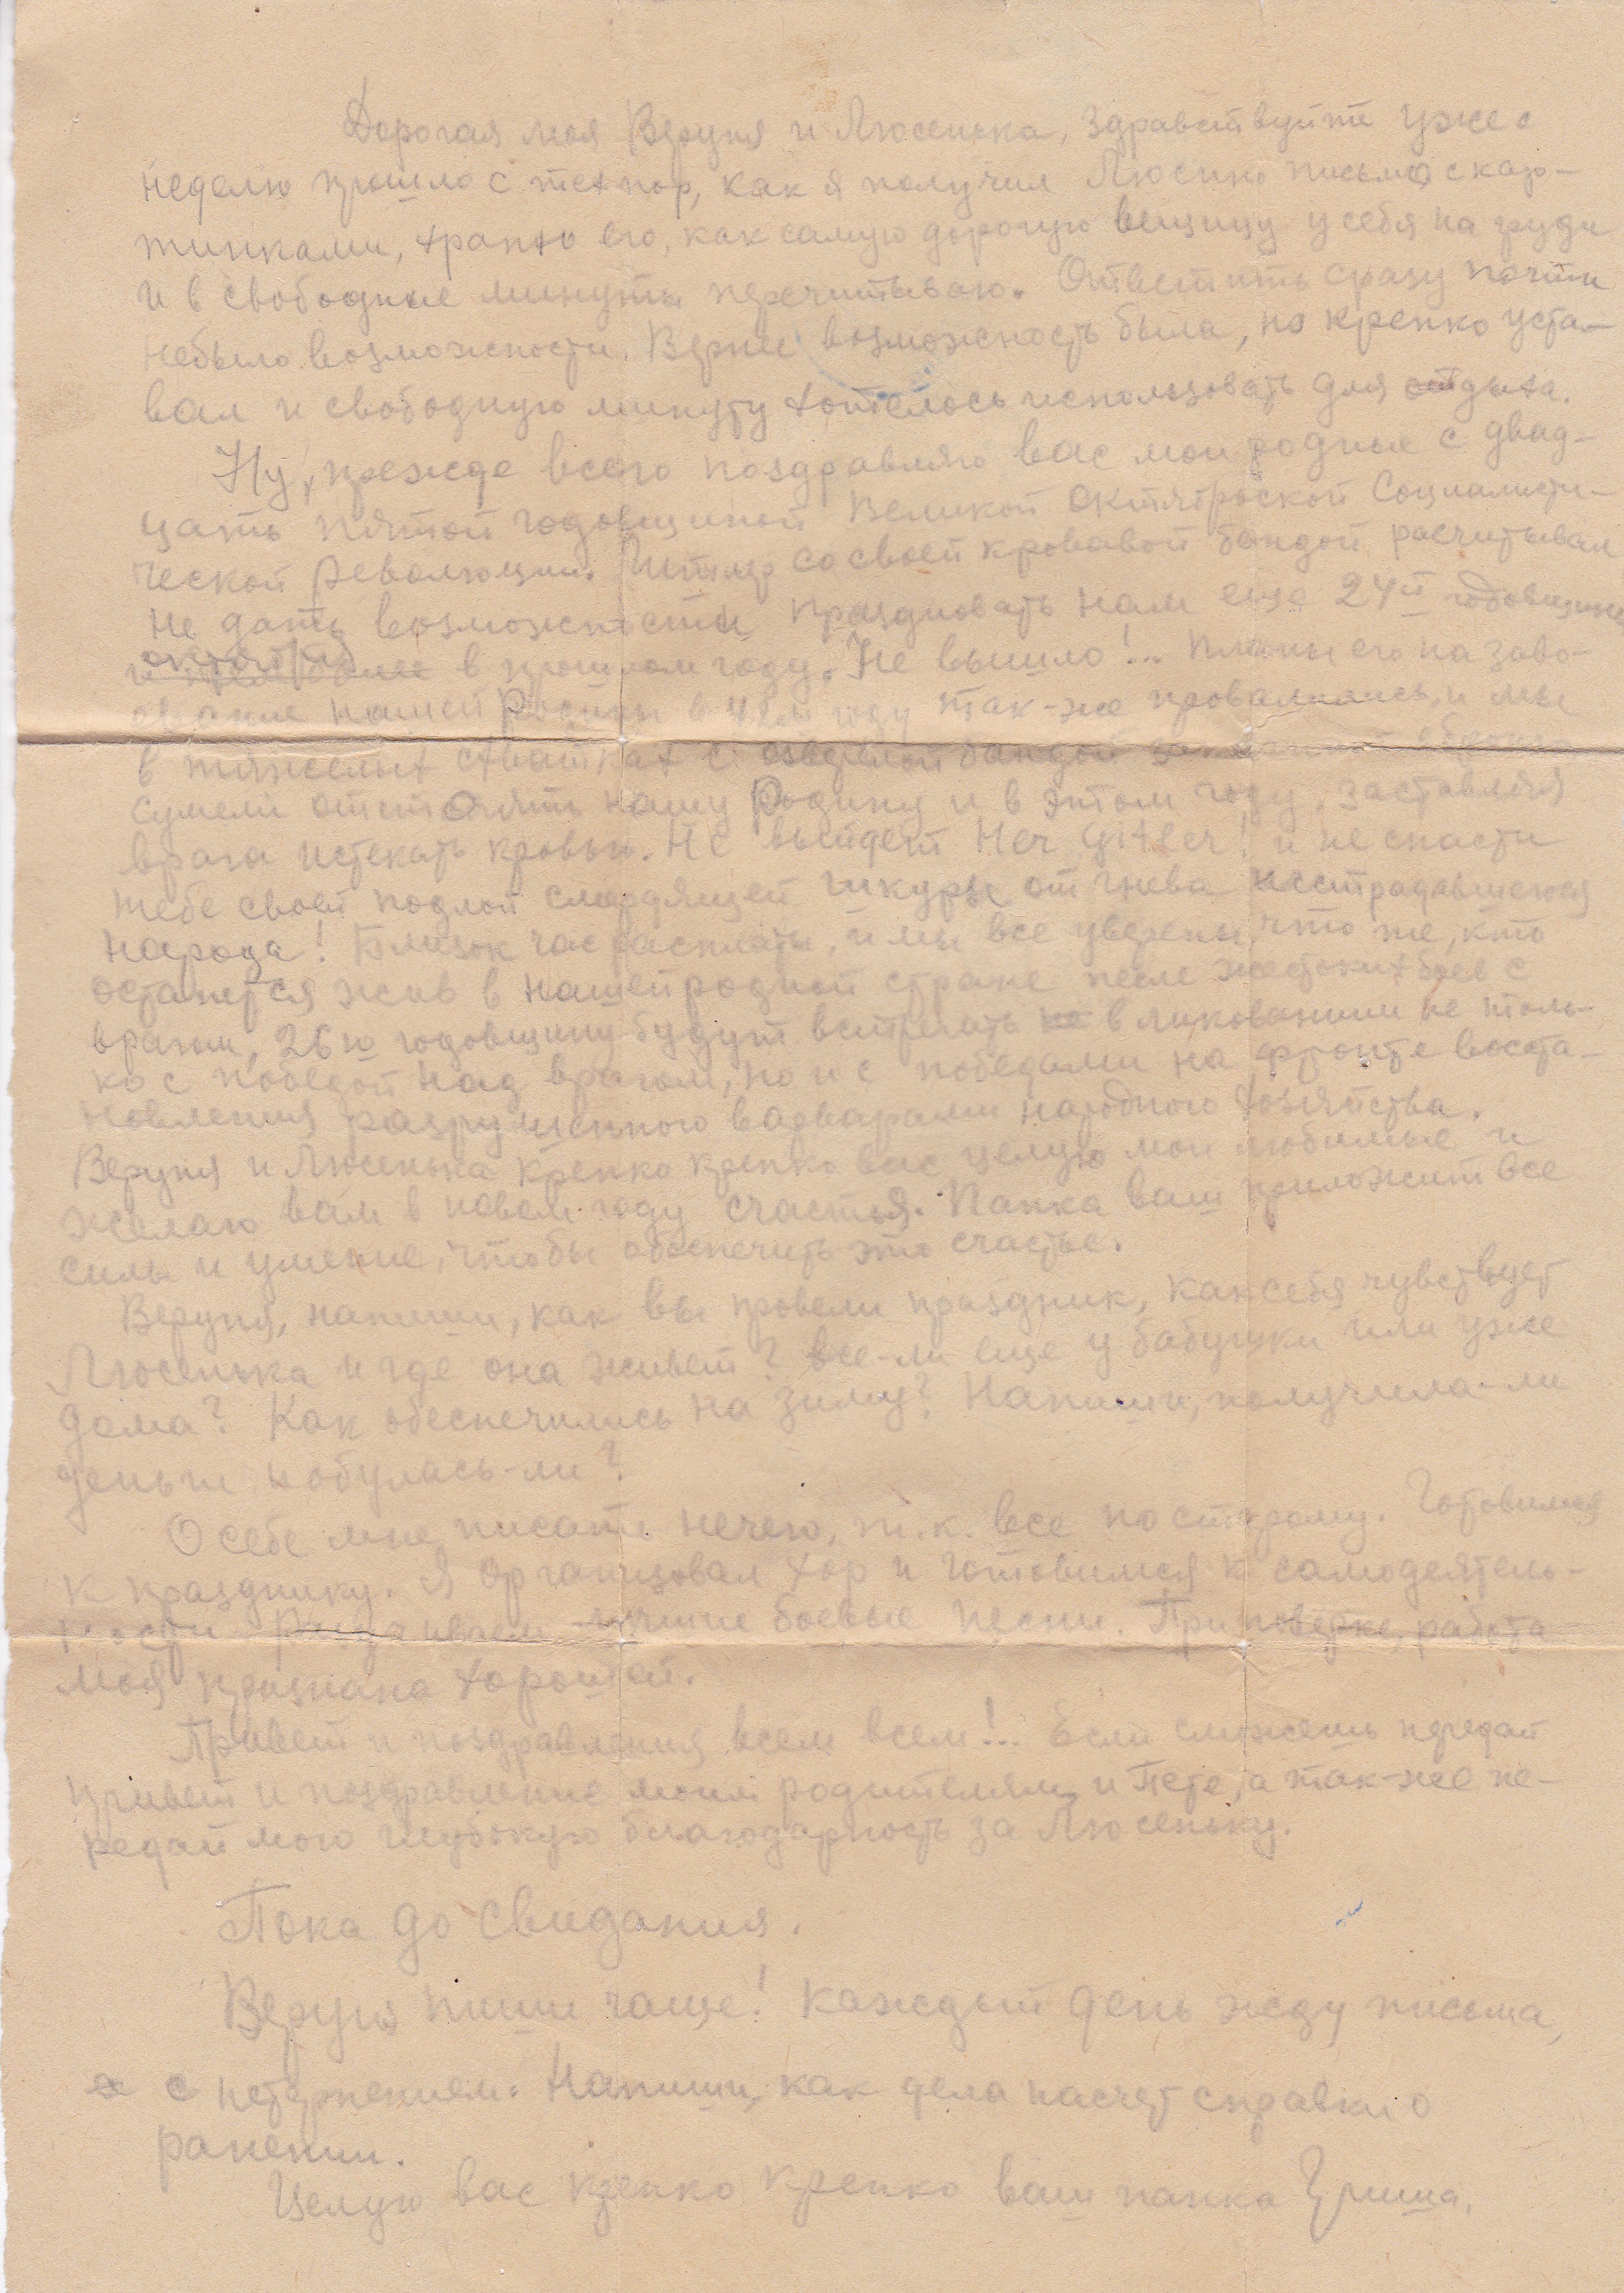 Дорогая моя Веруня и Люсенька, здравствуйте уже с
неделю прошло с тех пор, как я получил Люсино письмо с кар-
тинками, храню его, как самую дорогую вещицу у себя на груди
и в свободные минуты перечитываю. Ответить сразу почти
небыло возможности. Верне возможность была, но крепко уста-
вал и свободную минуту хотелось использовать для отдыха.
Ну, прежде всего поздравляю вас мои родные с двад-
цать пятой годовщиной Великой Октябрьской Социалисти-
ческой революции. Гитлер со своей кровавой бандой расчитывал
не дать возможности праздновать нам еще 24й годовщины
октября в прошлом году. Не вышло!.. Планы его на заво-
евание нашей Родины в 42м году так-же провалились, и мы
в тяжелых схватках с озверелой бандой
сумели отстоять нашу Родину и в этом году, заставляя
врага истекать кровью. Не выйдет Her Gitler! и не спасти
тебе своей подлой смердящей шкуры от гнева исстрадавшегося
народа! Близок час расплаты, и мы все уверены, что те, кто
останется жив в нашей родной стране после жестоких боев с
врагом, 26ю годовщину будут встречать в ликовании не толь-
ко с победой над врагом, но и с победами на фронте воста-
новления разрушенного варварами народного хозяйства.
Веруня и Люсенька крепко крепко вас целую мои любимые и
желаю вам в новом году счастья. Папка ваш приложит все
силы и умение, чтобы обеспечить это счастье.
Веруня, напиши, как вы провели праздник, как себя чувствует
Люсенька и где она живет? все-ли еще у бабушки или уже
дома? Как обеспечились на зиму? Напиши, получила-ли
деньги и обулась-ли?
О себе мне писать нечего, т.к. все по старому. Готовимся
к празднику. Я организовал хор и готовимся к самодеятель-
ности Разучиваем лучшие боевые песни. При поверке, работа
моя признана хорошей.
Привет и поздравления всем всем!.. Если сможешь передай
привет и поздравление моим родителям и Пете, а так-же пе-
редай мою глубокую благодарность за Люсеньку.
Пока до свидания.
Веруня пиши чаще! Каждый день жду письма,
с нетерпением. Напиши, как дела насчет справки о
ранении.
Целую вас крепко крепко ваш папка Гриша.